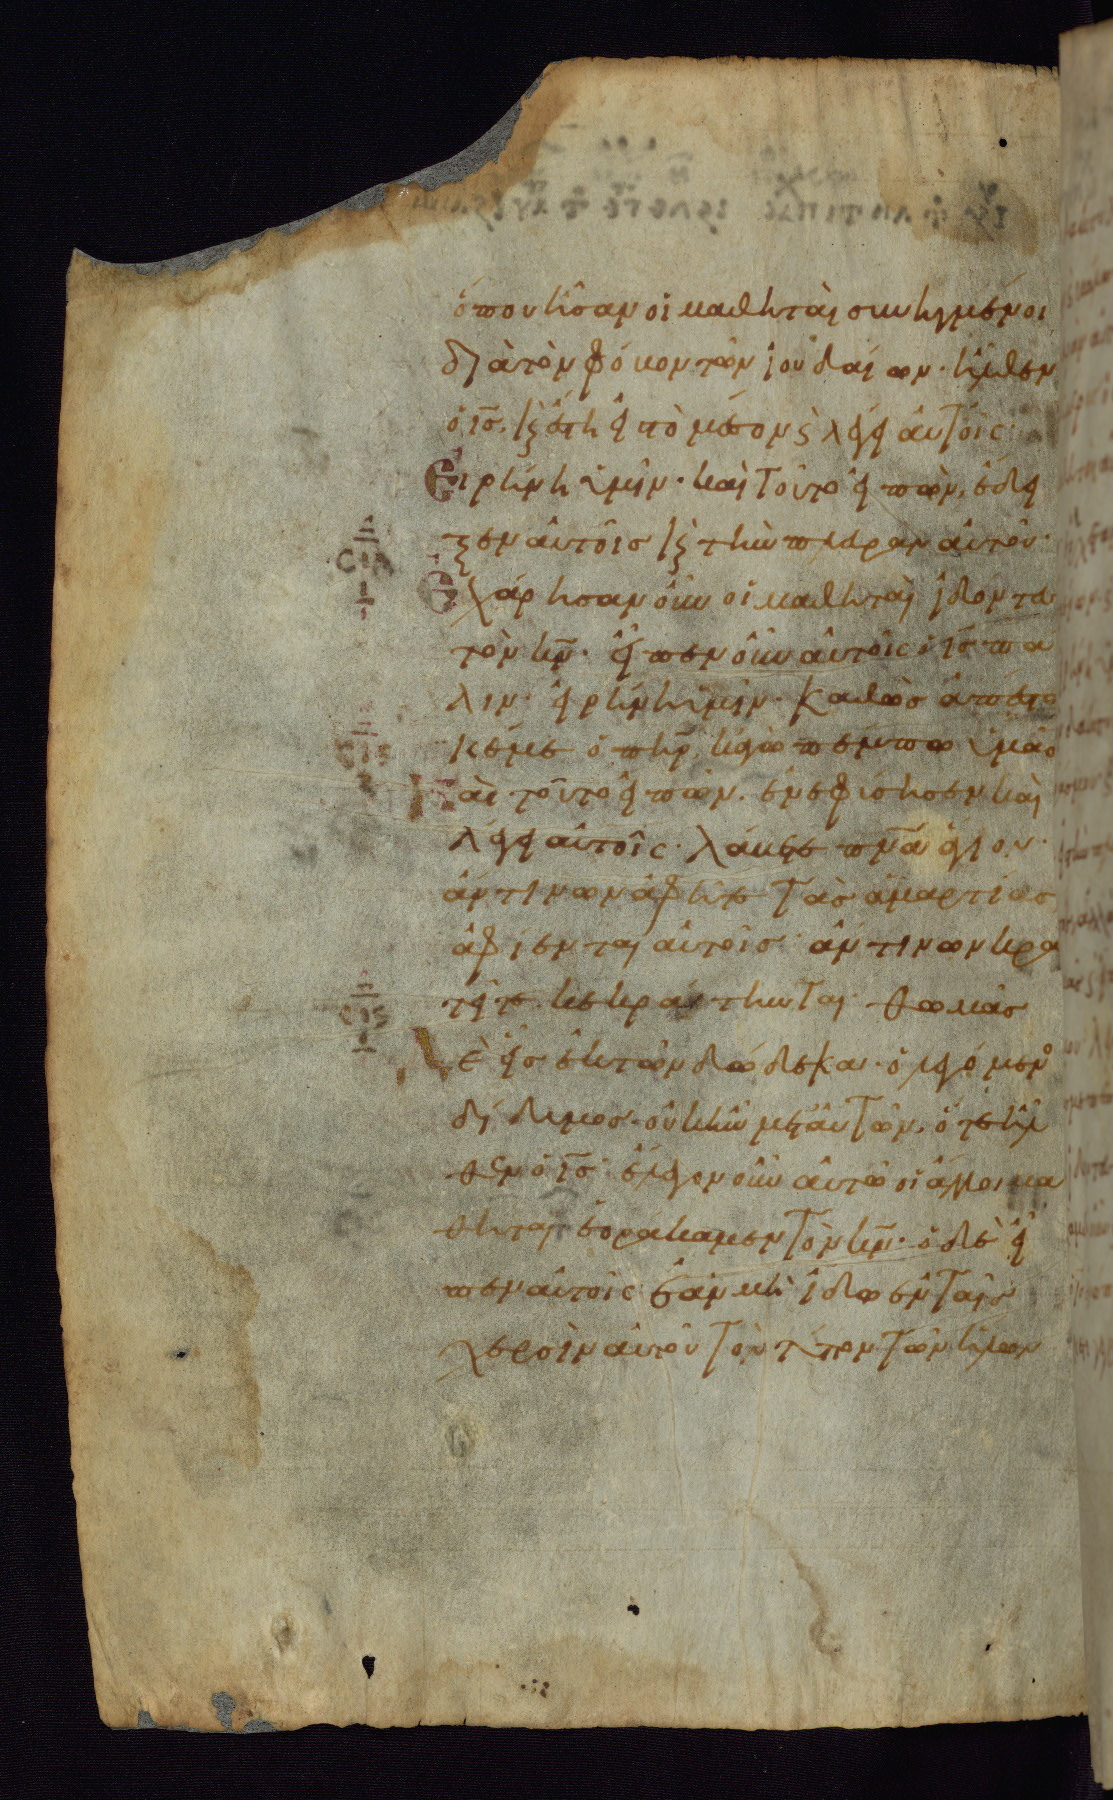 ὅπου ἦσαν οἱ μαθηταὶ συνηγμένοι
διὰ τὸν φόβον τῶν ἰουδαίων· ἦλθεν
ὁ ις̅. καὶ ἔστη εἰς τὸ μέσον καὶ λέγει αὐτοῖς·
Εἰρήνη ὑμῖν· καὶ τοῦτο εἰπὼν, ἔδει
ξεν αὐτοῖς καὶ τὴν πλευρὰν αὐτοῦ·
Ἐχάρησαν οὖν οἱ μαθηταὶ ἰδόντες
τὸν κν̅· εἶπεν οὖν αὐτοῖς ὁ ις̅ πά
λιν· εἰρήνη ὑμῖν· καθὼς ἀπέσταλ
κέ με ὁ πηρ̅, κἀγὼ πέμπω ὑμᾶς
Καὶ τοῦτο εἰπὼν. ἐνεφύσησεν καὶ
λέγει αὐτοῖς· λάβετε πνα̅ ἅγιον·
ἄν τινων ἀφῆτε τὰς ἁμαρτίας
ἀφίενται αὐτοῖς· ἄν τινων κρα
τῆτε κεκράτηνται· θωμᾶς
δὲ εἷς ἐκ τῶν δώδεκα· ὁ λεγόμενος
δίδυμος· οὐκ ἦν μετ' αὐτῶν, ὅτε ἦλ
θεν ὁ ις̅· ἔλεγον οὖν αὐτῶ οἱ ἄλλοι μα
θηταὶ ἑωράκαμεν τὸν κν̅· ὁ δὲ εἶ
πεν αὐτοῖς· ἐὰν μὴ ἴδω ἐν ταῖς
χερσὶν αὐτοῦ τὸν τύπον τῶν ἥλων